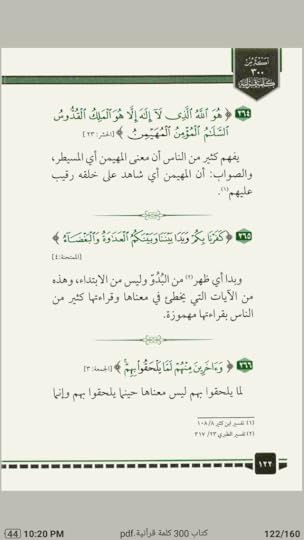 أكثر من
٣٠٠
كلمة قرآنية
٢٦٤ ﴿ هُوَ ٱللَّهُ ٱلَّذِى لَآ إِلَٰهَ إِلَّا هُوَ ٱلْمَلِكُ ٱلْقُدُّوسُ
ٱلسَّلَٰمُ ٱلْمُؤْمِنُ ٱلْمُهَيْمِنُ ﴾ [الحشر: ٢٣]
يفهم كثير من الناس أن معنى المهيمن أي المسيطر،
والصواب: أن المهيمن أي شاهد على خلقه رقيب
عليهم(١).
٢٦٥ ﴿ كَفَرْنَا بِكُمْ وَبَدَا بَيْنَنَا وَبَيْنَكُمُ ٱلْعَدَٰوَةُ وَٱلْبَغْضَآءُ ﴾
[الممتحنة: ٤]
وبدا أي ظهر(٢) من البُدُوّ وليس من الابتداء، وهذه
من الآيات التي يخطئ في معناها وقراءتها كثير من
الناس بقراءتها مهموزة.
٢٦٦ ﴿ وَءَاخَرِينَ مِنْهُمْ لَمَّا يَلْحَقُوا۟ بِهِمْ ﴾ [الجمعة: ٣]
لما يلحقوا بهم ليس معناها حينما يلحقوا بهم وإنما
(١) تفسير ابن كثير ٨/ ١٠٨
(٢) تفسير الطبري ٢٣/ ٣١٧
١٢٢
44 10:20 PM كتاب 300 كلمة قرآنية.pdf 122/160